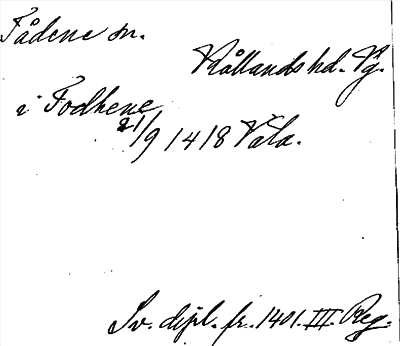 Fådene sn.
Kållands hd. Vg.
i Fodhene
21/9 1418 Vala.
Sv. dipl. fr. 1401. III. Reg.